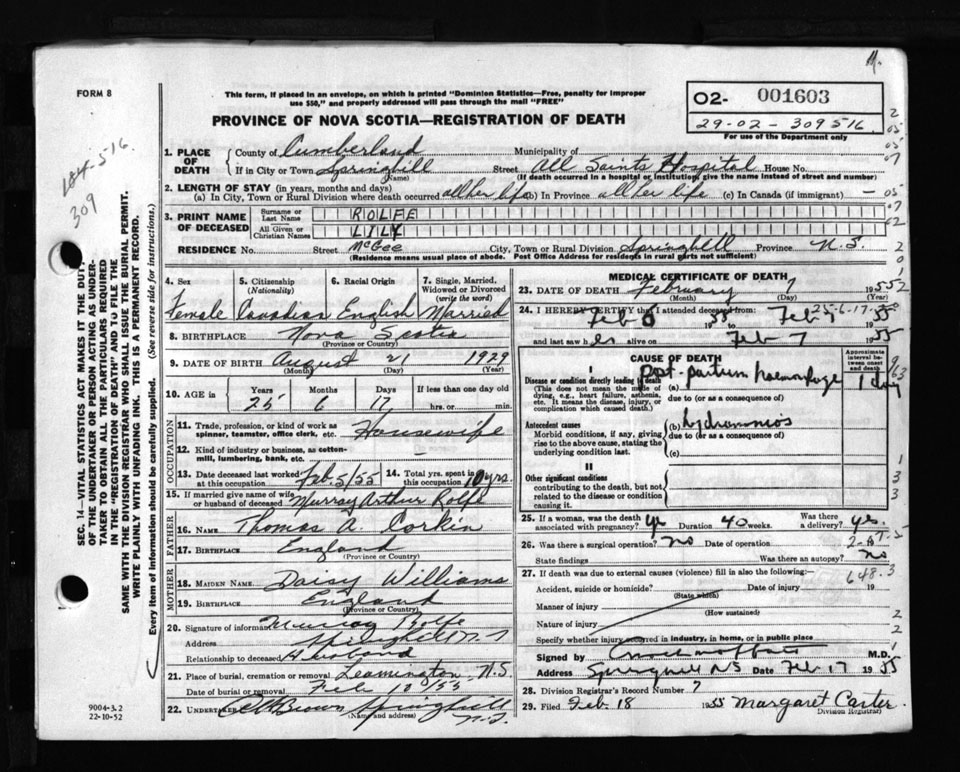 M.
FORM 8
This form, if placed in an envelope, on which is printed "Dominion Statistics—Free, penalty for improper
use $50," and properly addressed will pass through the mail "FREE"
PROVINCE OF NOVA SCOTIA—REGISTRATION OF DEATH
02- 001603
29-02-309516
For use of the Department only
184-516
309
SEC. 14—VITAL STATISTICS ACT MAKES IT THE DUTY
OF THE UNDERTAKER OR PERSON ACTING AS UNDER-
TAKER TO OBTAIN ALL THE PARTICULARS REQUIRED
IN THE "REGISTRATION OF DEATH" AND TO FILE THE
SAME WITH THE DIVISION REGISTRAR WHO SHALL ISSUE THE BURIAL PERMIT.
WRITE PLAINLY WITH UNFADING INK. THIS IS A PERMANENT RECORD.
Every item of Information should be carefully supplied. (See reverse side for instructions.)
1. PLACE OF DEATH
County of Cumberland Municipality of
If in City or Town Springhill Street All Saints Hospital House No.
(Name) (If death occurred in a hospital or institution, give the name instead of street and number)
2. LENGTH OF STAY (in years, months and days)
(a) In City, Town or Rural Division where death occurred all her life (b) In Province all her life (c) In Canada (if immigrant) —
3. PRINT NAME OF DECEASED
Surname or Last Name ROLFE
All Given or Christian Names LILY
RESIDENCE No. Street McGee City, Town or Rural Division Springhill Province N.S.
(Residence means usual place of abode. Post Office Address for residents in rural parts not sufficient)
4. Sex 5. Citizenship (Nationality) 6. Racial Origin 7. Single, Married, Widowed or Divorced (write the word)
Female Canadian English Married
8. BIRTHPLACE Nova Scotia
(Province or Country)
9. DATE OF BIRTH August 21 1929
(Month) (Day) (Year)
10. AGE in Years Months Days If less than one day old
25 6 17 hrs. or min.
OCCUPATION
11. Trade, profession, or kind of work as
spinner, teamster, office clerk, etc. Housewife
12. Kind of industry or business, as cotton-
mill, lumbering, bank, etc. —
13. Date deceased last worked at this occupation Feb. 5/55 14. Total yrs. spent in this occupation 10 yrs.
15. If married give name of wife
or husband of deceased Murray Arthur Rolfe
FATHER
16. NAME Thomas A. Corkin
17. BIRTHPLACE England
(Province or Country)
MOTHER
18. MAIDEN NAME Daisy Williams
19. BIRTHPLACE England
(Province or Country)
20. Signature of informant Murray Rolfe
Address Springhill N.S
Relationship to deceased Husband
21. Place of burial, cremation or removal Leamington N.S
Date of burial or removal Feb 10/55
22. UNDERTAKER Brown Springhill
(Name and address) N.S.
9004-3.2
22-10-52
MEDICAL CERTIFICATE OF DEATH
23. DATE OF DEATH February 7 1955
(Month) (Day) (Year)
24. I HEREBY CERTIFY that I attended deceased from: 25-6-17
Feb 1955 to Feb 1955
and last saw her alive on Feb 7 1955
CAUSE OF DEATH
Approximate interval between onset and death
I
Disease or condition directly leading to death
(This does not mean the mode of
dying, e.g., heart failure, asthenia,
etc. It means the disease, injury, or
complication which caused death.)
(a) Post-partum haemorrhage 1 day
due to (or as a consequence of)
Antecedent causes
Morbid conditions, if any, giving
rise to the above cause, stating the
underlying condition last.
(b) hydramnios
due to (or as a consequence of)
(c)
II
Other significant conditions
contributing to the death, but not
related to the disease or condition
causing it.
25. If a woman, was the death
associated with pregnancy? yes Duration 40 weeks. Was there a delivery? yes.
26. Was there a surgical operation? No Date of operation
State findings Was there an autopsy? No
27. If death was due to external causes (violence) fill in also the following:— 648.3
Accident, suicide or homicide? Date of injury 19
(State which)
Manner of injury
(How sustained)
Nature of injury
Specify whether injury occurred in industry, in home, or in public place
Signed by M.D.
Address Springhill NS Date Feb 17 1955
28. Division Registrar's Record Number 7
29. Filed Feb. 18 1955 Margaret Carter
Division Registrar